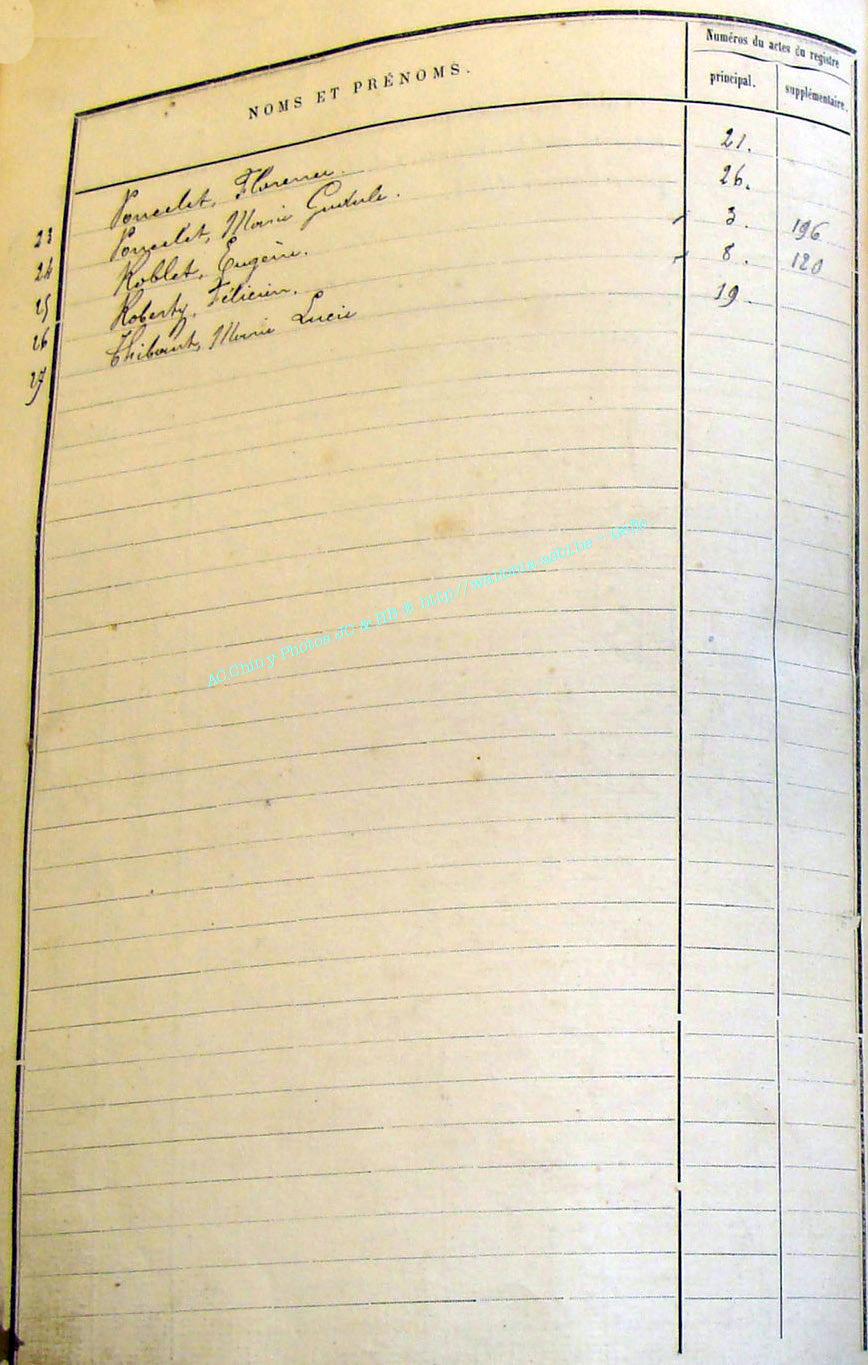 NOMS ET PRÉNOMS.
Numéros du actes du registre
principal.
supplémentaire.
23 Poncelet, Florence. 21.
24 Poncelet, Marie Gudule. 26.
25 Roblet, Eugène. 3. 196
26 Roberty, Félicien. 8. 120
27 Thibaut, Marie Lucie 19.
AC Chiny Photos JC & BB @ http://